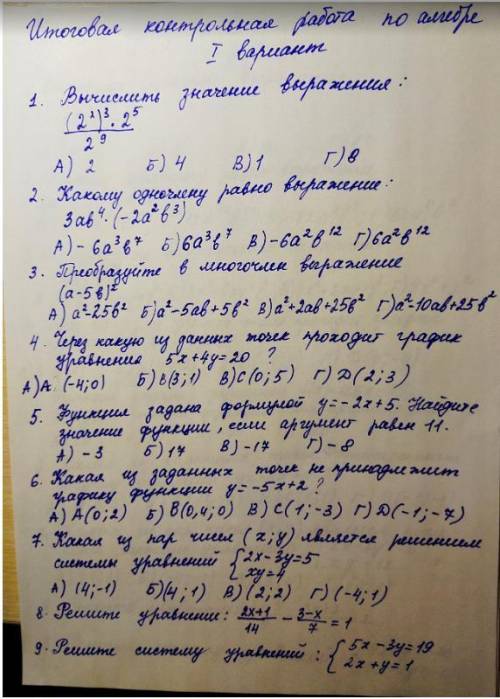 Итоговая контрольная работа по алгебре
I вариант
1. Вычислить значение выражения:
(2²)³ · 2⁵
2⁹
А) 2 Б) 4 В) 1 Г) 8
2. Какому одночлену равно выражение:
3ав⁴ · (-2а²в³)
А) -6а³в⁷ Б) 6а³в⁷ В) -6а²в¹² Г) 6а²в¹²
3. Преобразуйте в многочлен выражение
(а-5в)²
А) а²-25в² Б) а²-5ав+5в² В) а²+2ав+25в² Г) а²-10ав+25в²
4. Через какую из данных точек проходит график
уравнения 5x+4y=20 ?
А) А (-4;0) Б) В(3;1) В) С(0;5) Г) D(2;3)
5. Функция задана формулой y=-2x+5. Найдите
значение функции, если аргумент равен 11.
А) -3 Б) 17 В) -17 Г) -8
6. Какая из заданных точек не принадлежит
графику функции y=-5x+2 ?
А) А(0;2) Б) В(0,4;0) В) С(1;-3) Г) D(-1;-7)
7. Какая из пар чисел (x;y) является решением
системы уравнений { 2x-3y=5
xy=4
А) (4;-1) Б) (4;1) В) (2;2) Г) (-4;1)
8. Решите уравнение: (2x+1)/14 - (3-x)/7 = 1
9. Решите систему уравнений: { 5x-3y=19
2x+y=1